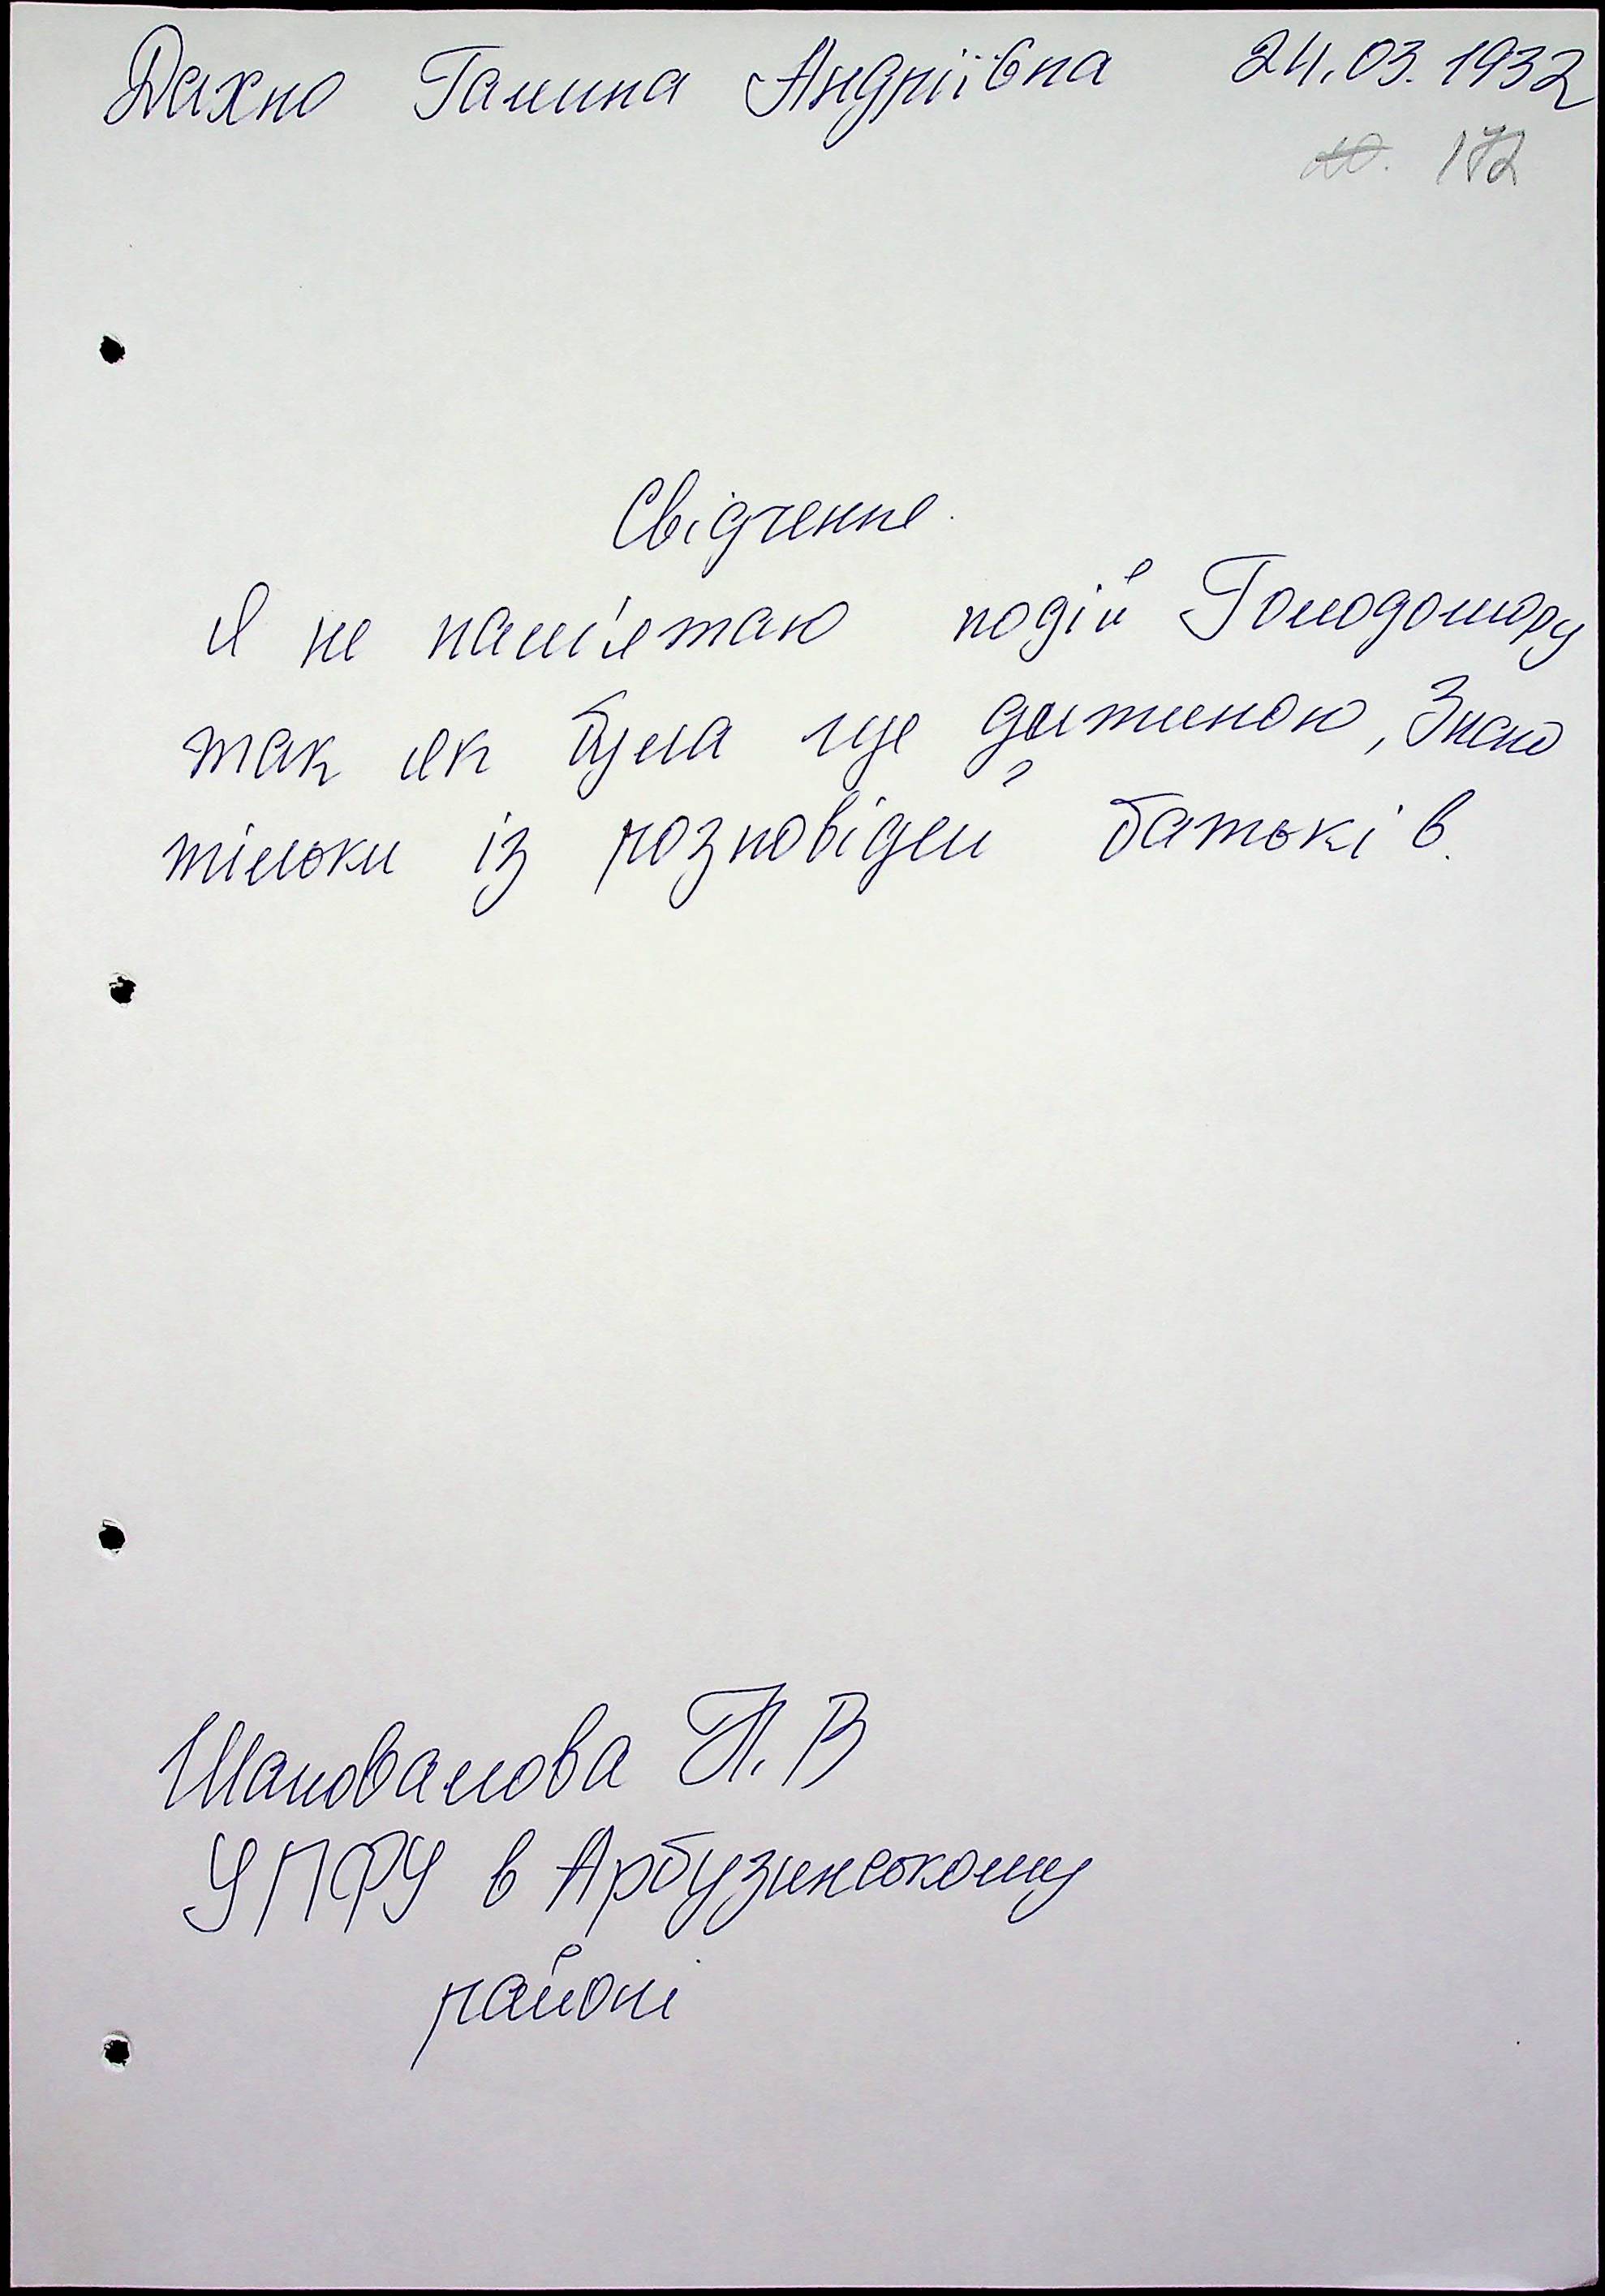 Дахно Галина Андріївна 24.03.1932
172
Свідчення.
Я не пам'ятаю подій Голодомору
так як була ще дитиною, Знаю
тільки із розповідей батьків.
Шаповалова Т. В
УПФУ в Арбузинському
районі